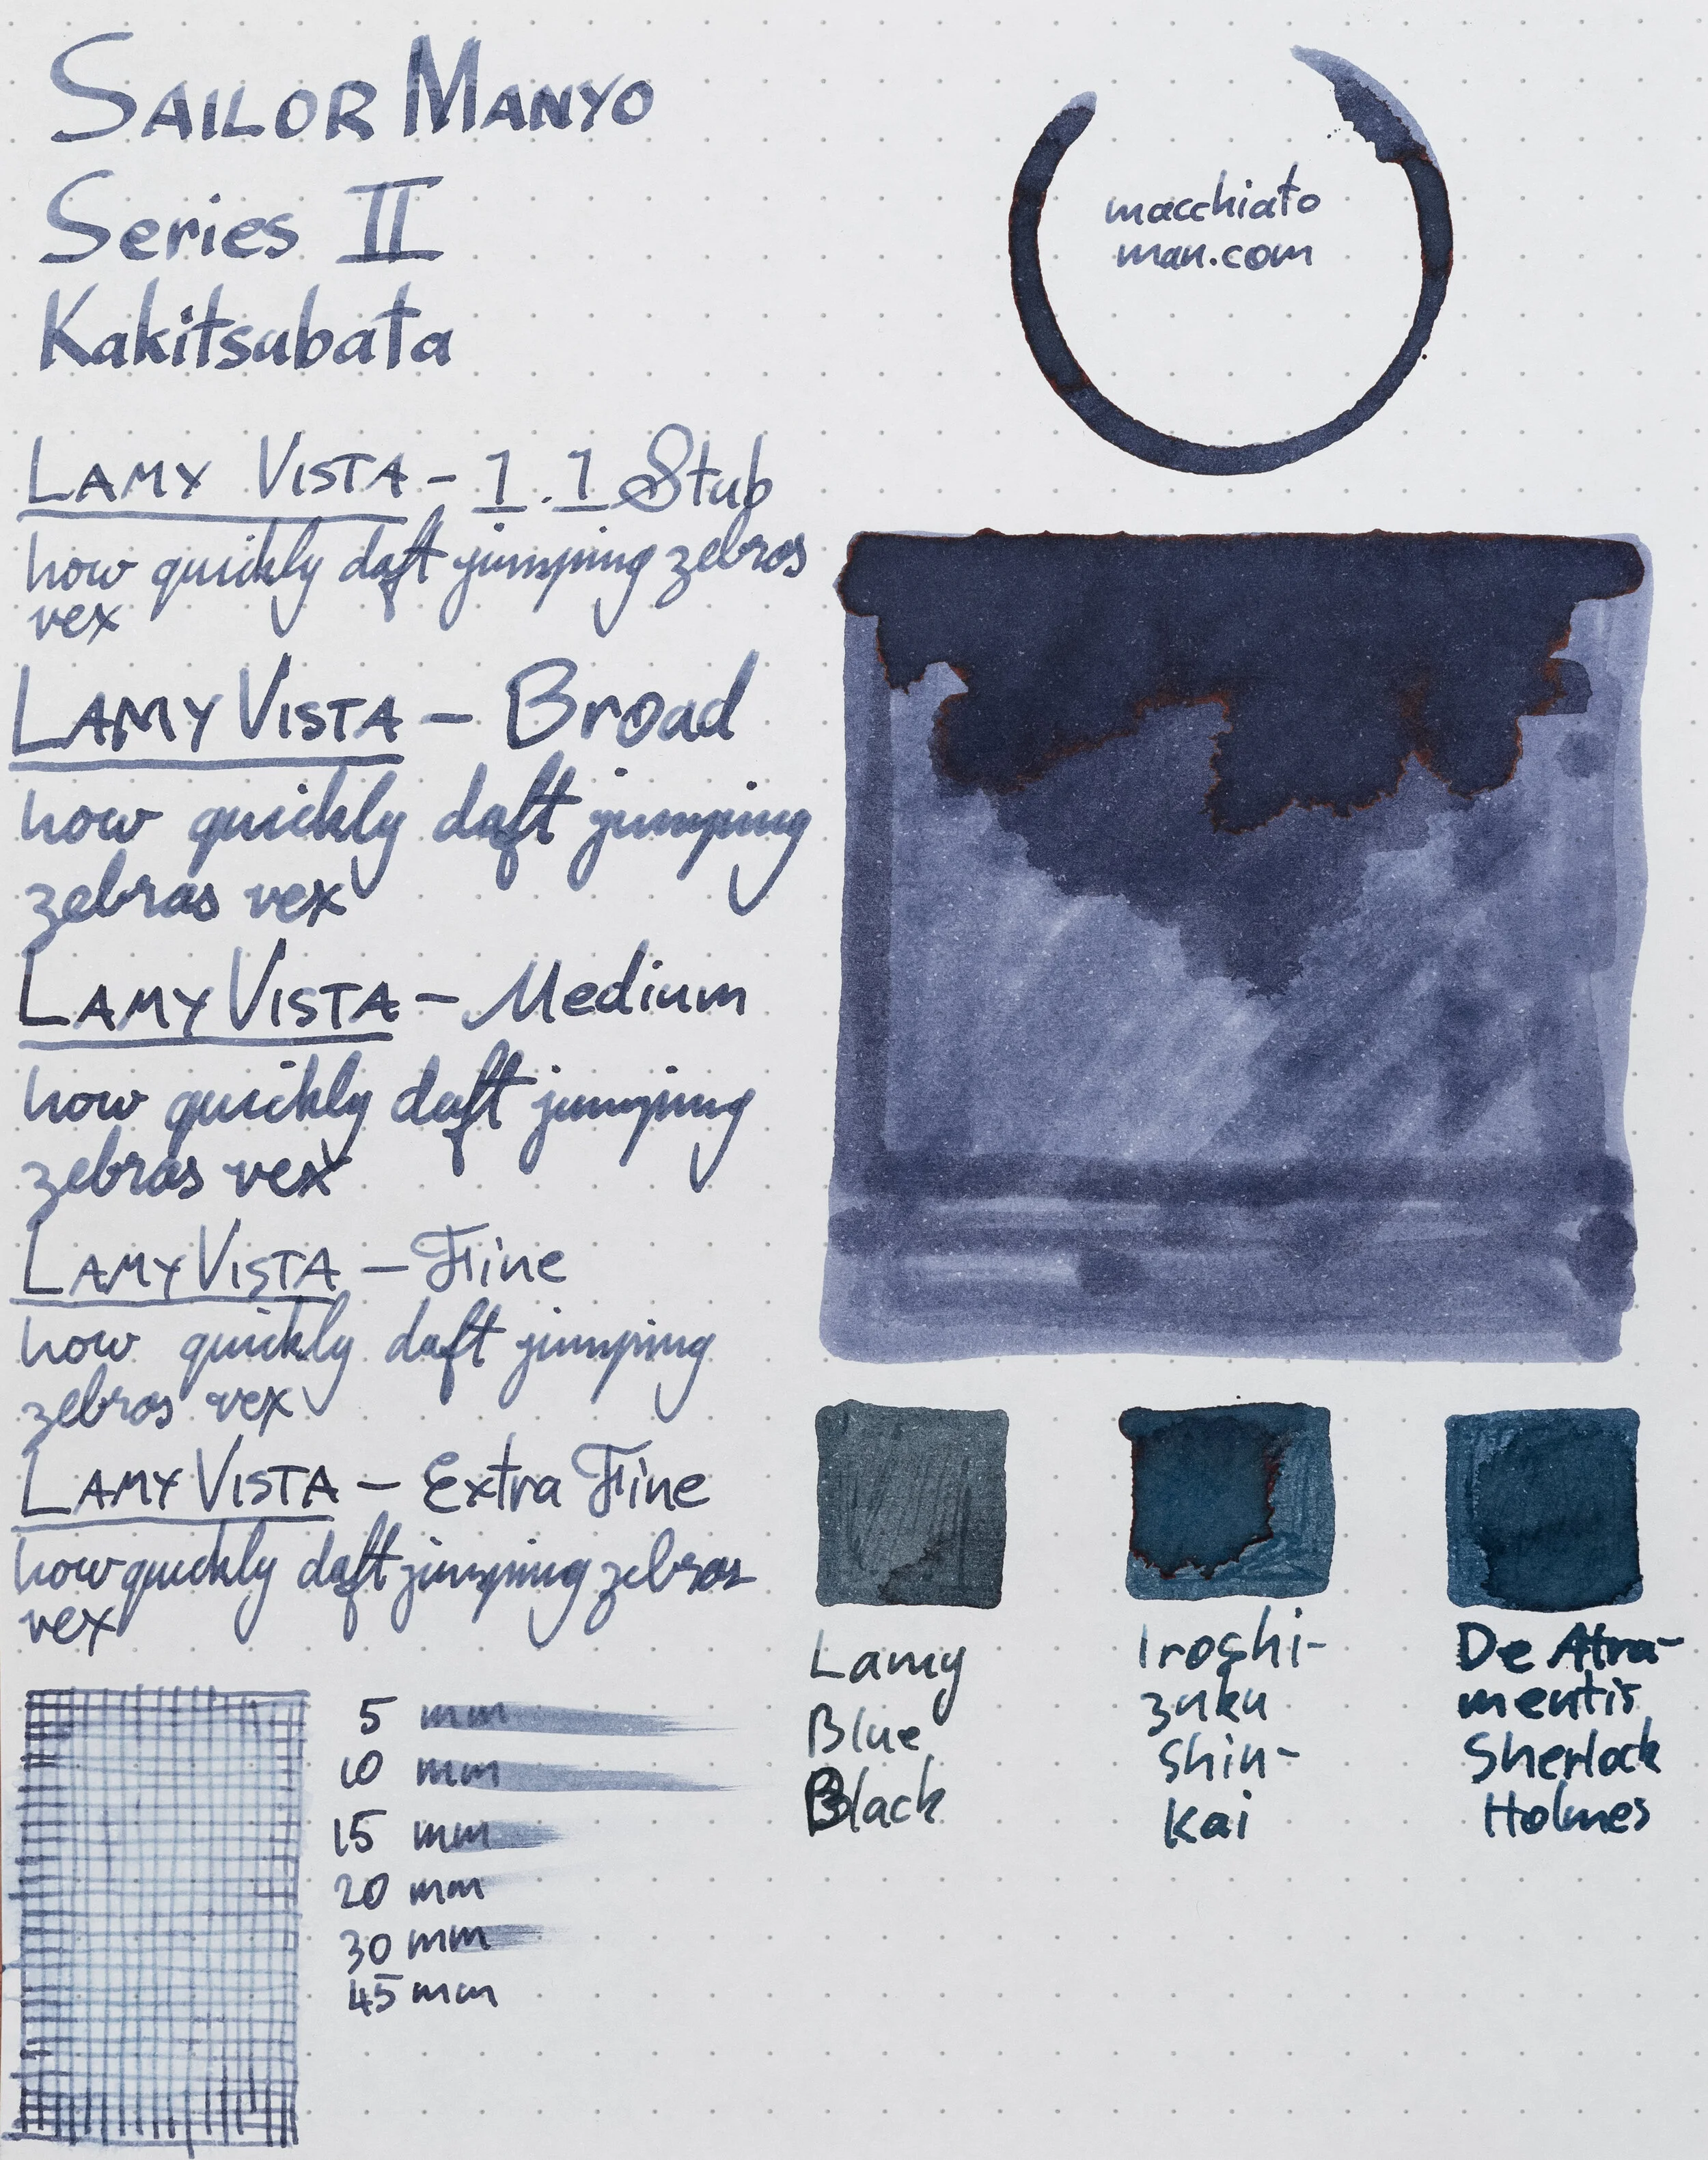 SAILOR MANYO
Series II
Kakitsubata
macchiato
man.com
LAMY VISTA - 1.1 Stub
how quickly daft jumping zebras
vex
LAMY VISTA - Broad
how quickly daft jumping
zebras vex
LAMY VISTA - Medium
how quickly daft jumping
zebras vex
LAMY VISTA - Fine
how quickly daft jumping
zebras vex
LAMY VISTA - Extra Fine
how quickly daft jumping zebras
vex
5 mm
10 mm
15 mm
20 mm
30 mm
45 mm
Lamy
Blue
Black
Iroshi-
zuku
Shin-
Kai
De Atra-
mentis
Sherlock
Holmes